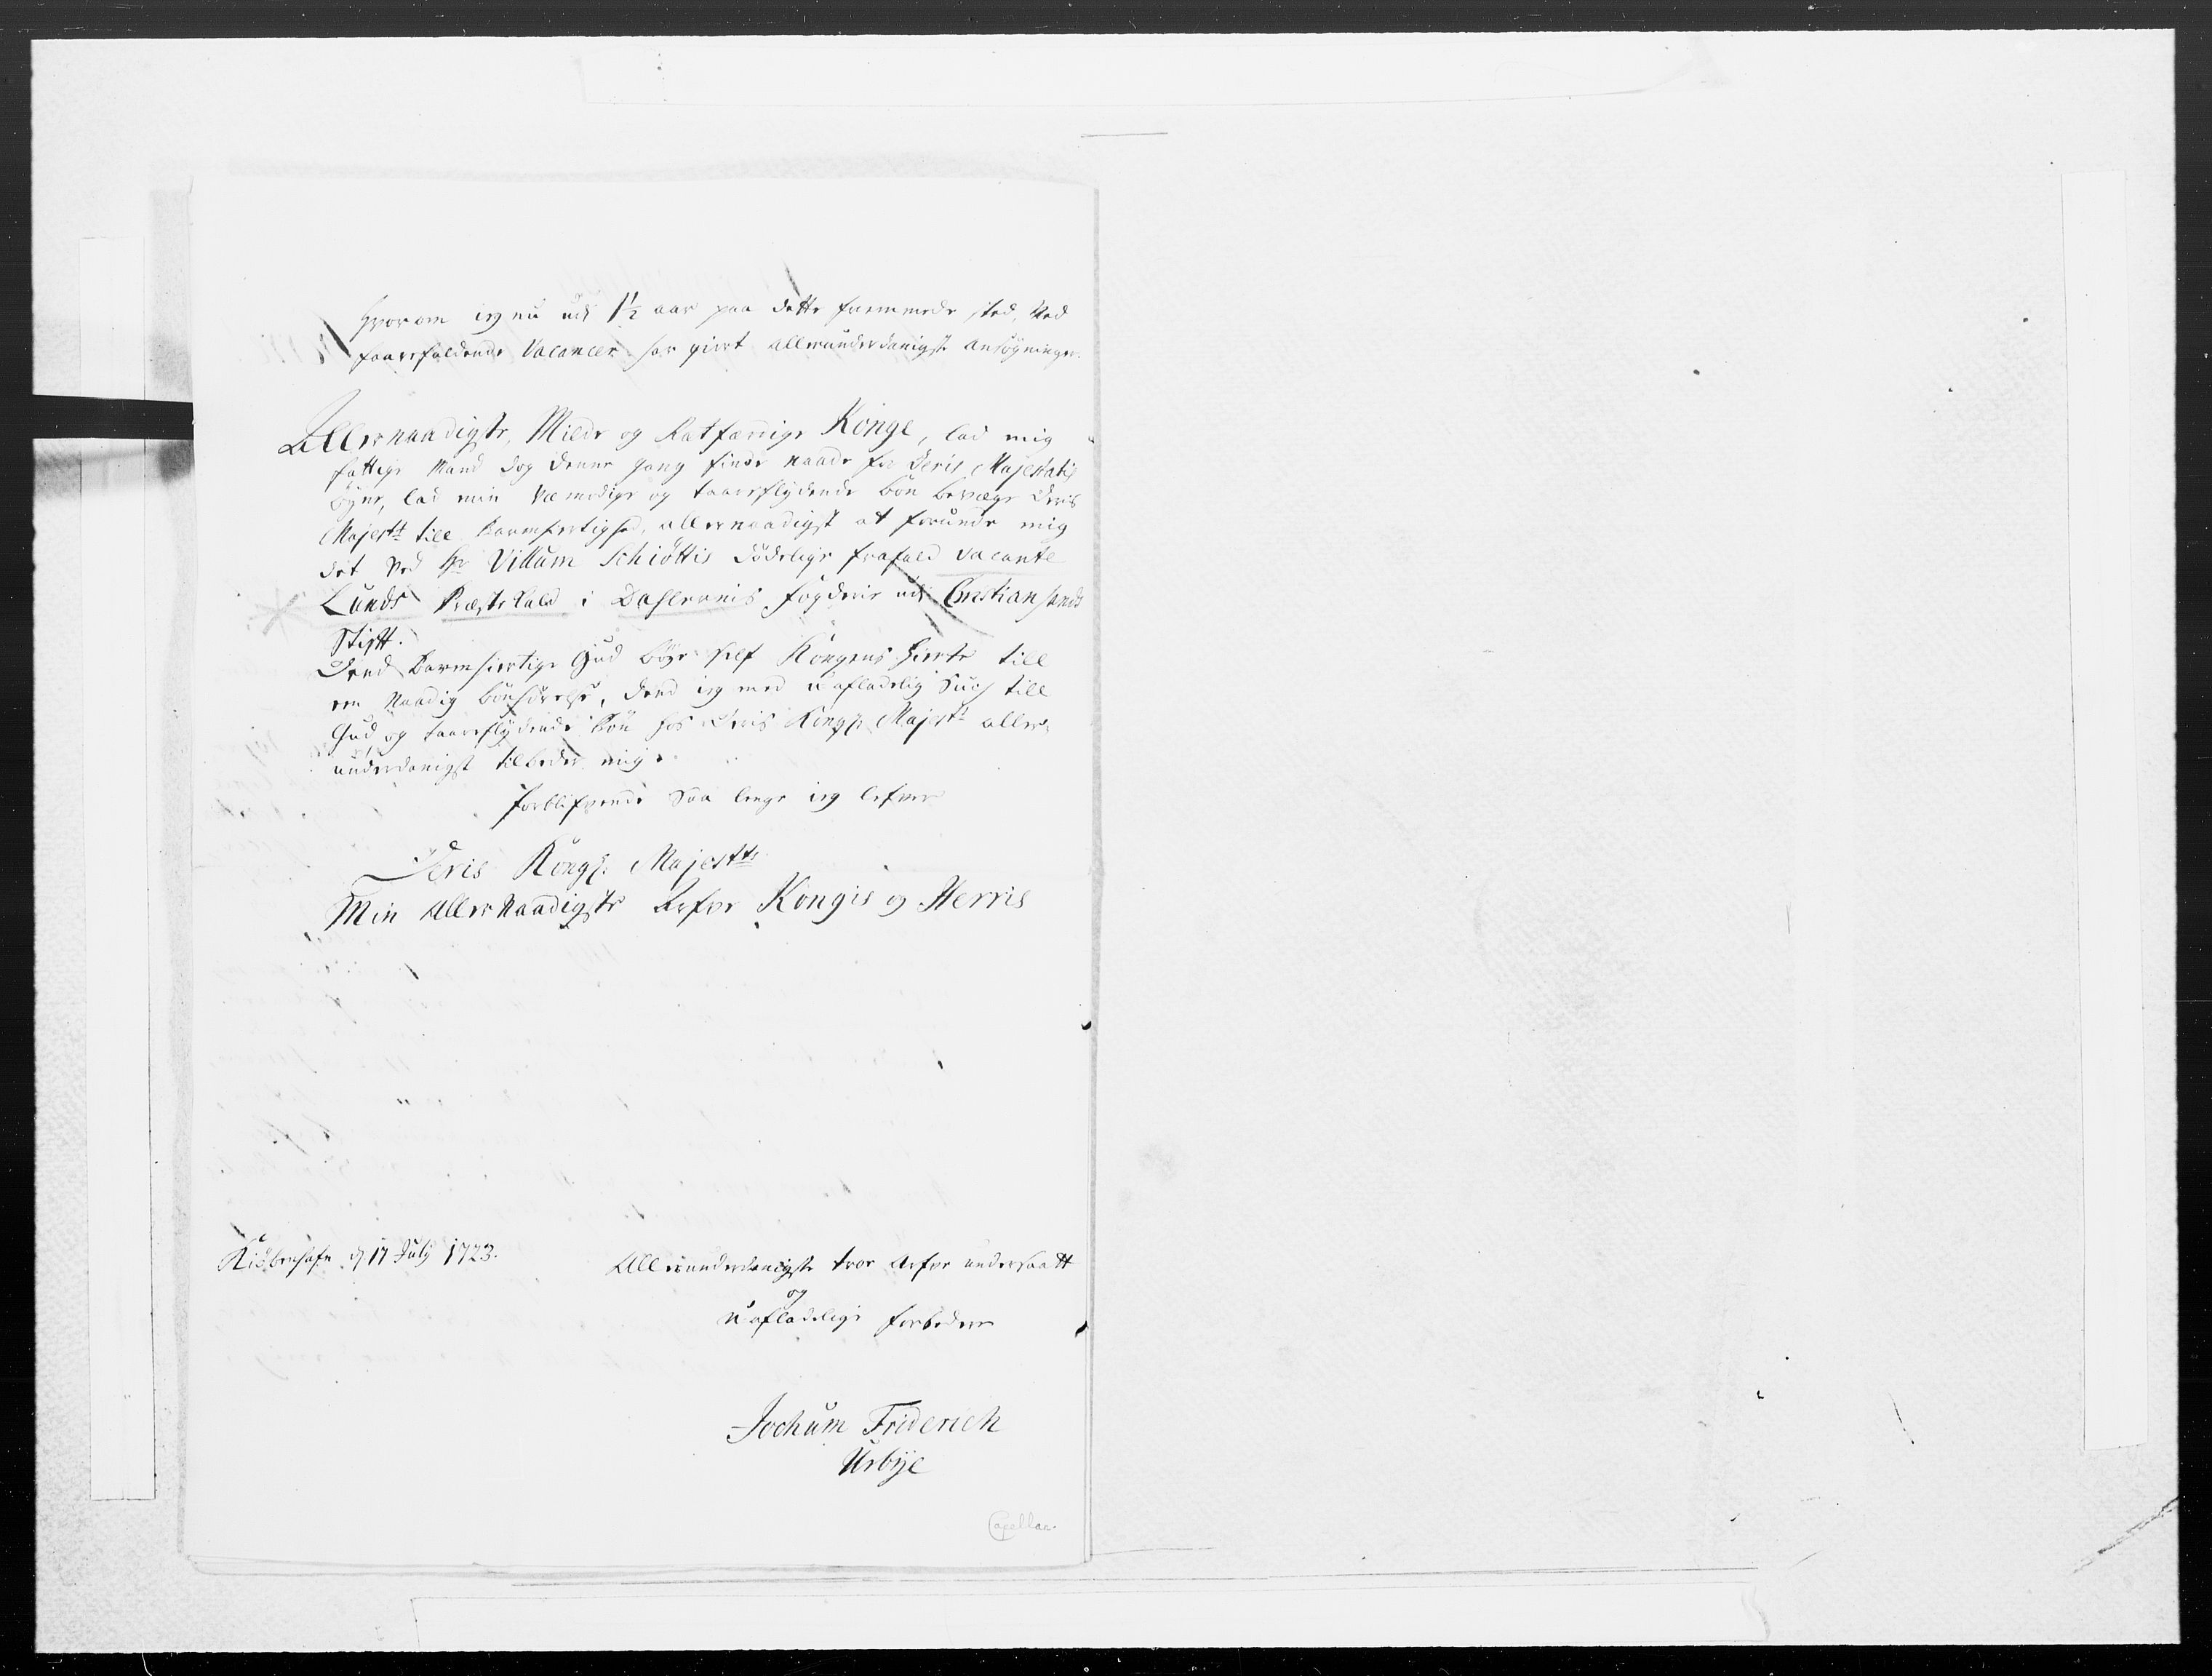 Hvorom ieg nu udi 1½ aar paa dette fremmede sted, Ved
foorefaldende Vacancer har giort allerunderdanigste ansøgninger.
Allernaadigste, Milde og Ratfærdige Konge, lad mig
fattige Mand dog denne gang finde naade for Deris Majestatis
Øyne, lad min Vemodige og taareflydende bøn bevæge Deris
Majestt till Barmhertighed, allernaadigst at forunde mig
det Ved Hr Villum Schiøttis dødelige frafald vacante
Lunds Præste Kald i Dahlernis fogderie udi Christiansands
Stigtt.
Dend Barmhiertige Gud bøye self Kongens Hierte till
een Naadig bønhørelse, dend ieg med uafladelig Such till
Gud og taareflydende bøn hos Deris Kongl. Majestt aller-
underdanigst tilbeder mig.
forblifvende saa lenge ieg lefver
Deris Kongl. Majestts
Min Allernaadigste Arfve Kongis og Herris
Kiøbenhafn d 17 July 1723.
Allerunderdanigste troe Arfve undersaatt
og
uafladelige forbedere
Jochum Friderich
Urbye
Capellan.